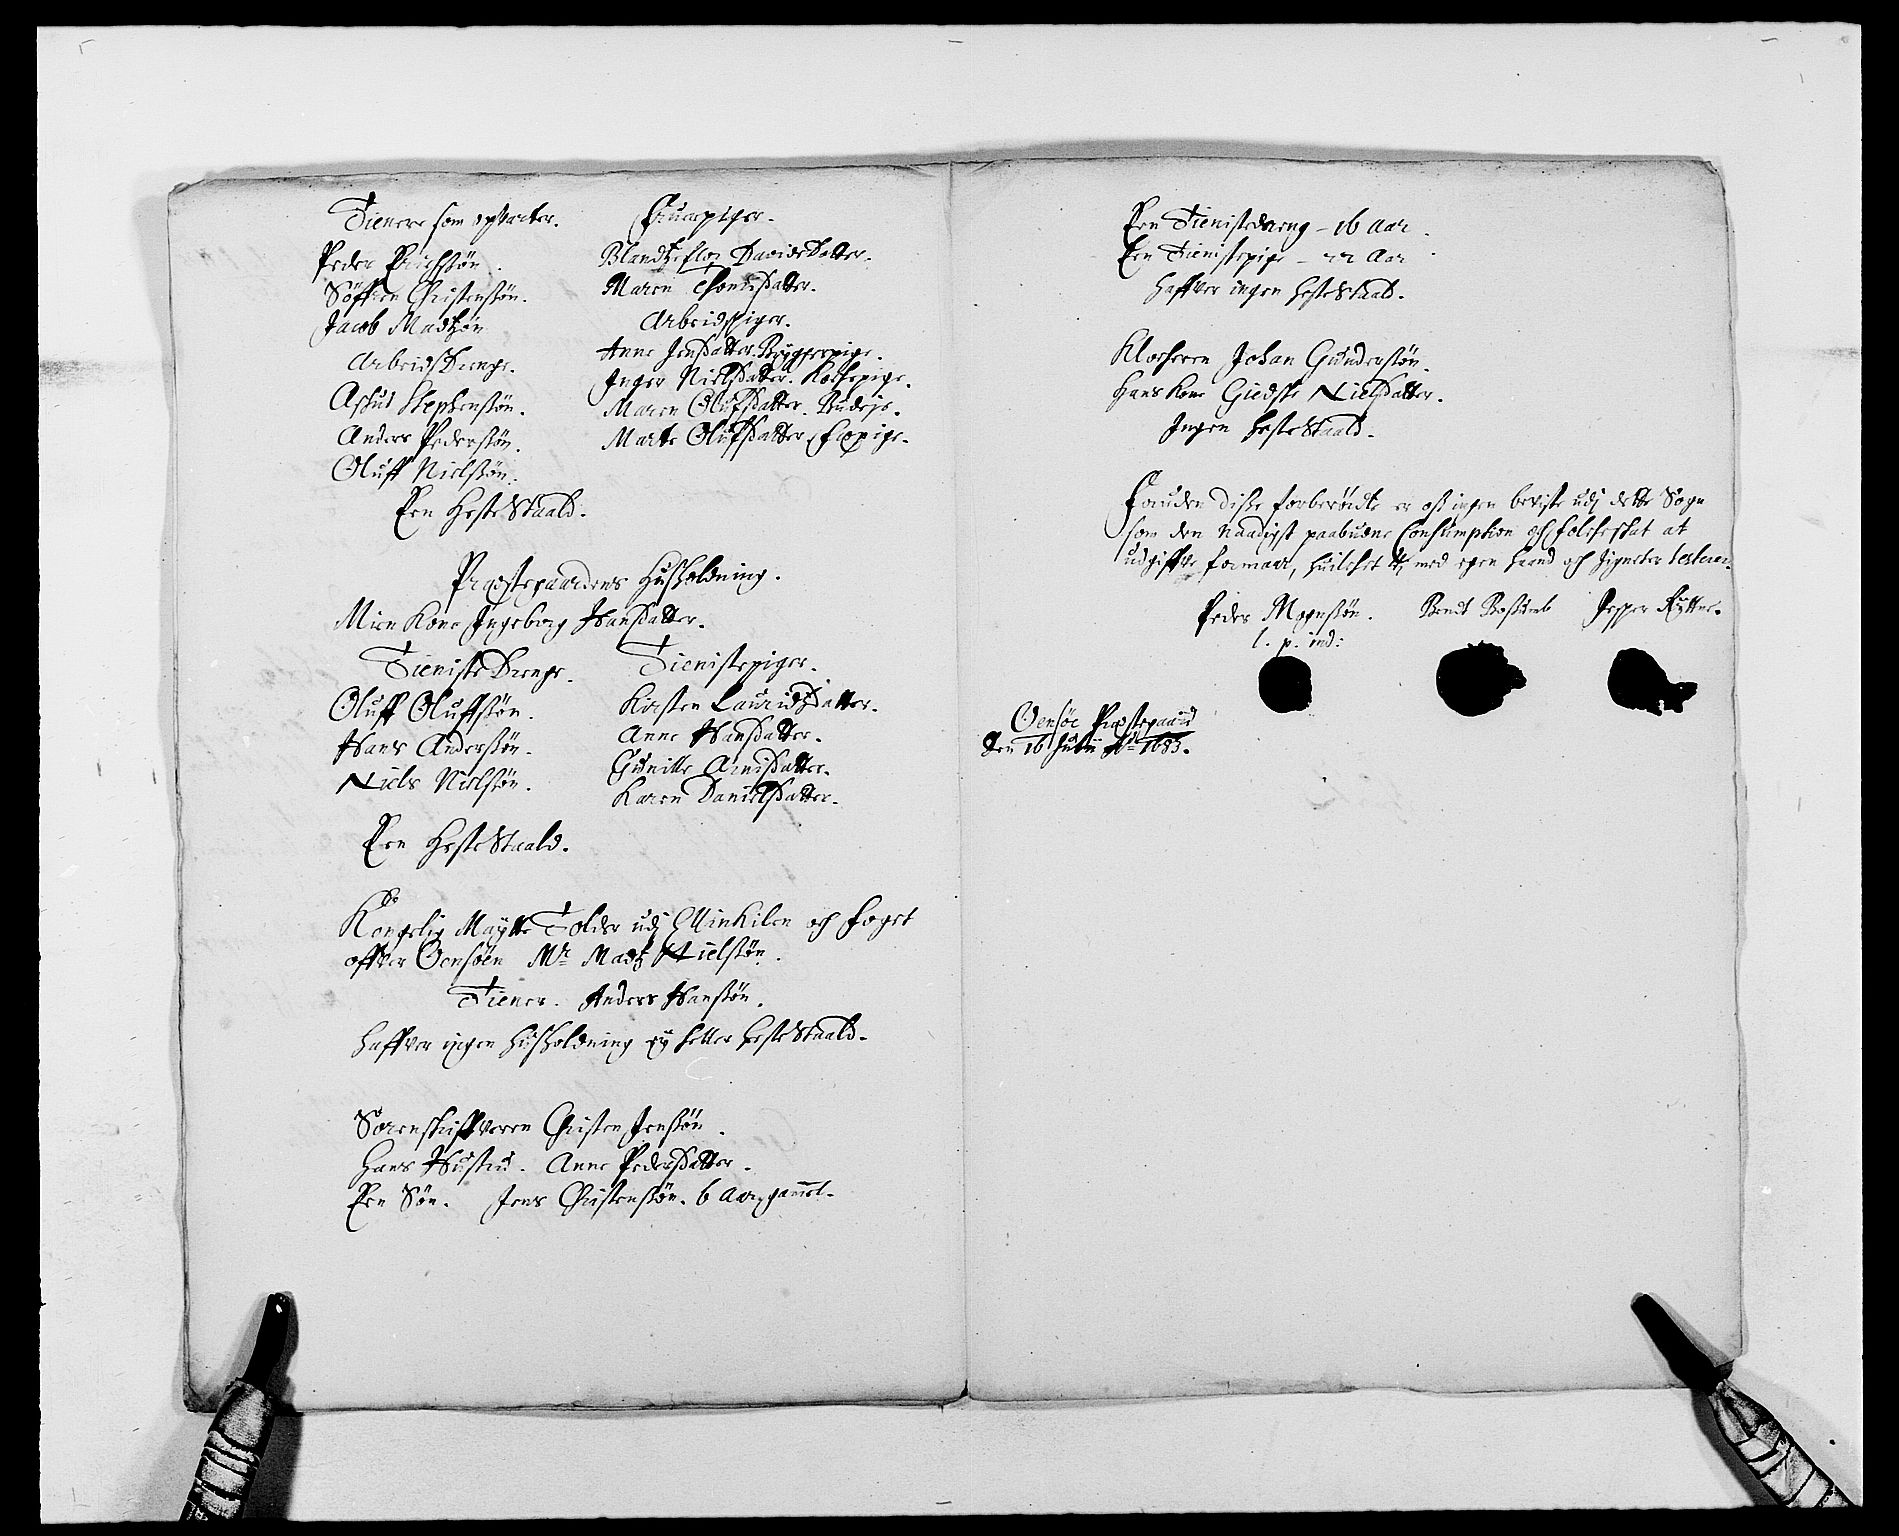 Tienere som opvarter.
Peder Erichssøn.
Søffren Christenssøn.
Jacob Madtzøn
ArbeidsDrenge.
Aschut Stephenssøn.
Anders Pederssøn.
Oluff Nielssøn.
Een HesteStaald.
Fruerpiger.
Blandtzeflor DavidsDatter.
Maren Pouelsdatter.
Arbeidspiger.
Anne Jensdatter. Bryggerpige.
Inger Nielsdatter. Kockepige.
Maren Olufsdatter. Budeje.
Marte Olufsdatter, Fæpige.
Præstegaardens Husholdning.
Min Kone Ingeborg Hansdatter.
TienisteDrenge.
Oluff Oluffssøn.
Hans Anderssøn.
Niels Nielssøn.
Tienistepiger.
Kirsten Lauridzdatter.
Anne Hansdatter.
Gunille Arnisdatter.
Karen Danielsdatter.
Een HesteStaald.
Kongelig Maytts Tolder udj Minkilen och foget
offver Oensøen Mr Madtz Nielssøn.
Tiener. Anders Hanssøn.
haffver ingen husholdning ey heller hesteStaald.
Sorenskriffveren Christen Jenssøn.
Hans Hustru. Anne Pedersdatter.
Een Søn. Jens Christenssøn. 6 Aar gammel.
Een Tienistedreng - 16 Aar.
Een Tienistepige - 22 Aar.
haffver ingen hesteStaald.
Klocheren Johan Gunderssøn.
Hans Kone Giedske Nielsdatter.
Ingen hesteStaald.
Foruden disse forberørdte er oss ingen beviste udj dette Sogn
som den Naadigst paabudne Consumption och folcheskat at
udgiffve formaar, huilchet med egen haand och Zigneter testerer.
Peder Mognssøn. Bendt Jesper Rytter.
l. p. ind:
Oensøe Præstegaard
den 16 Ao 1683.